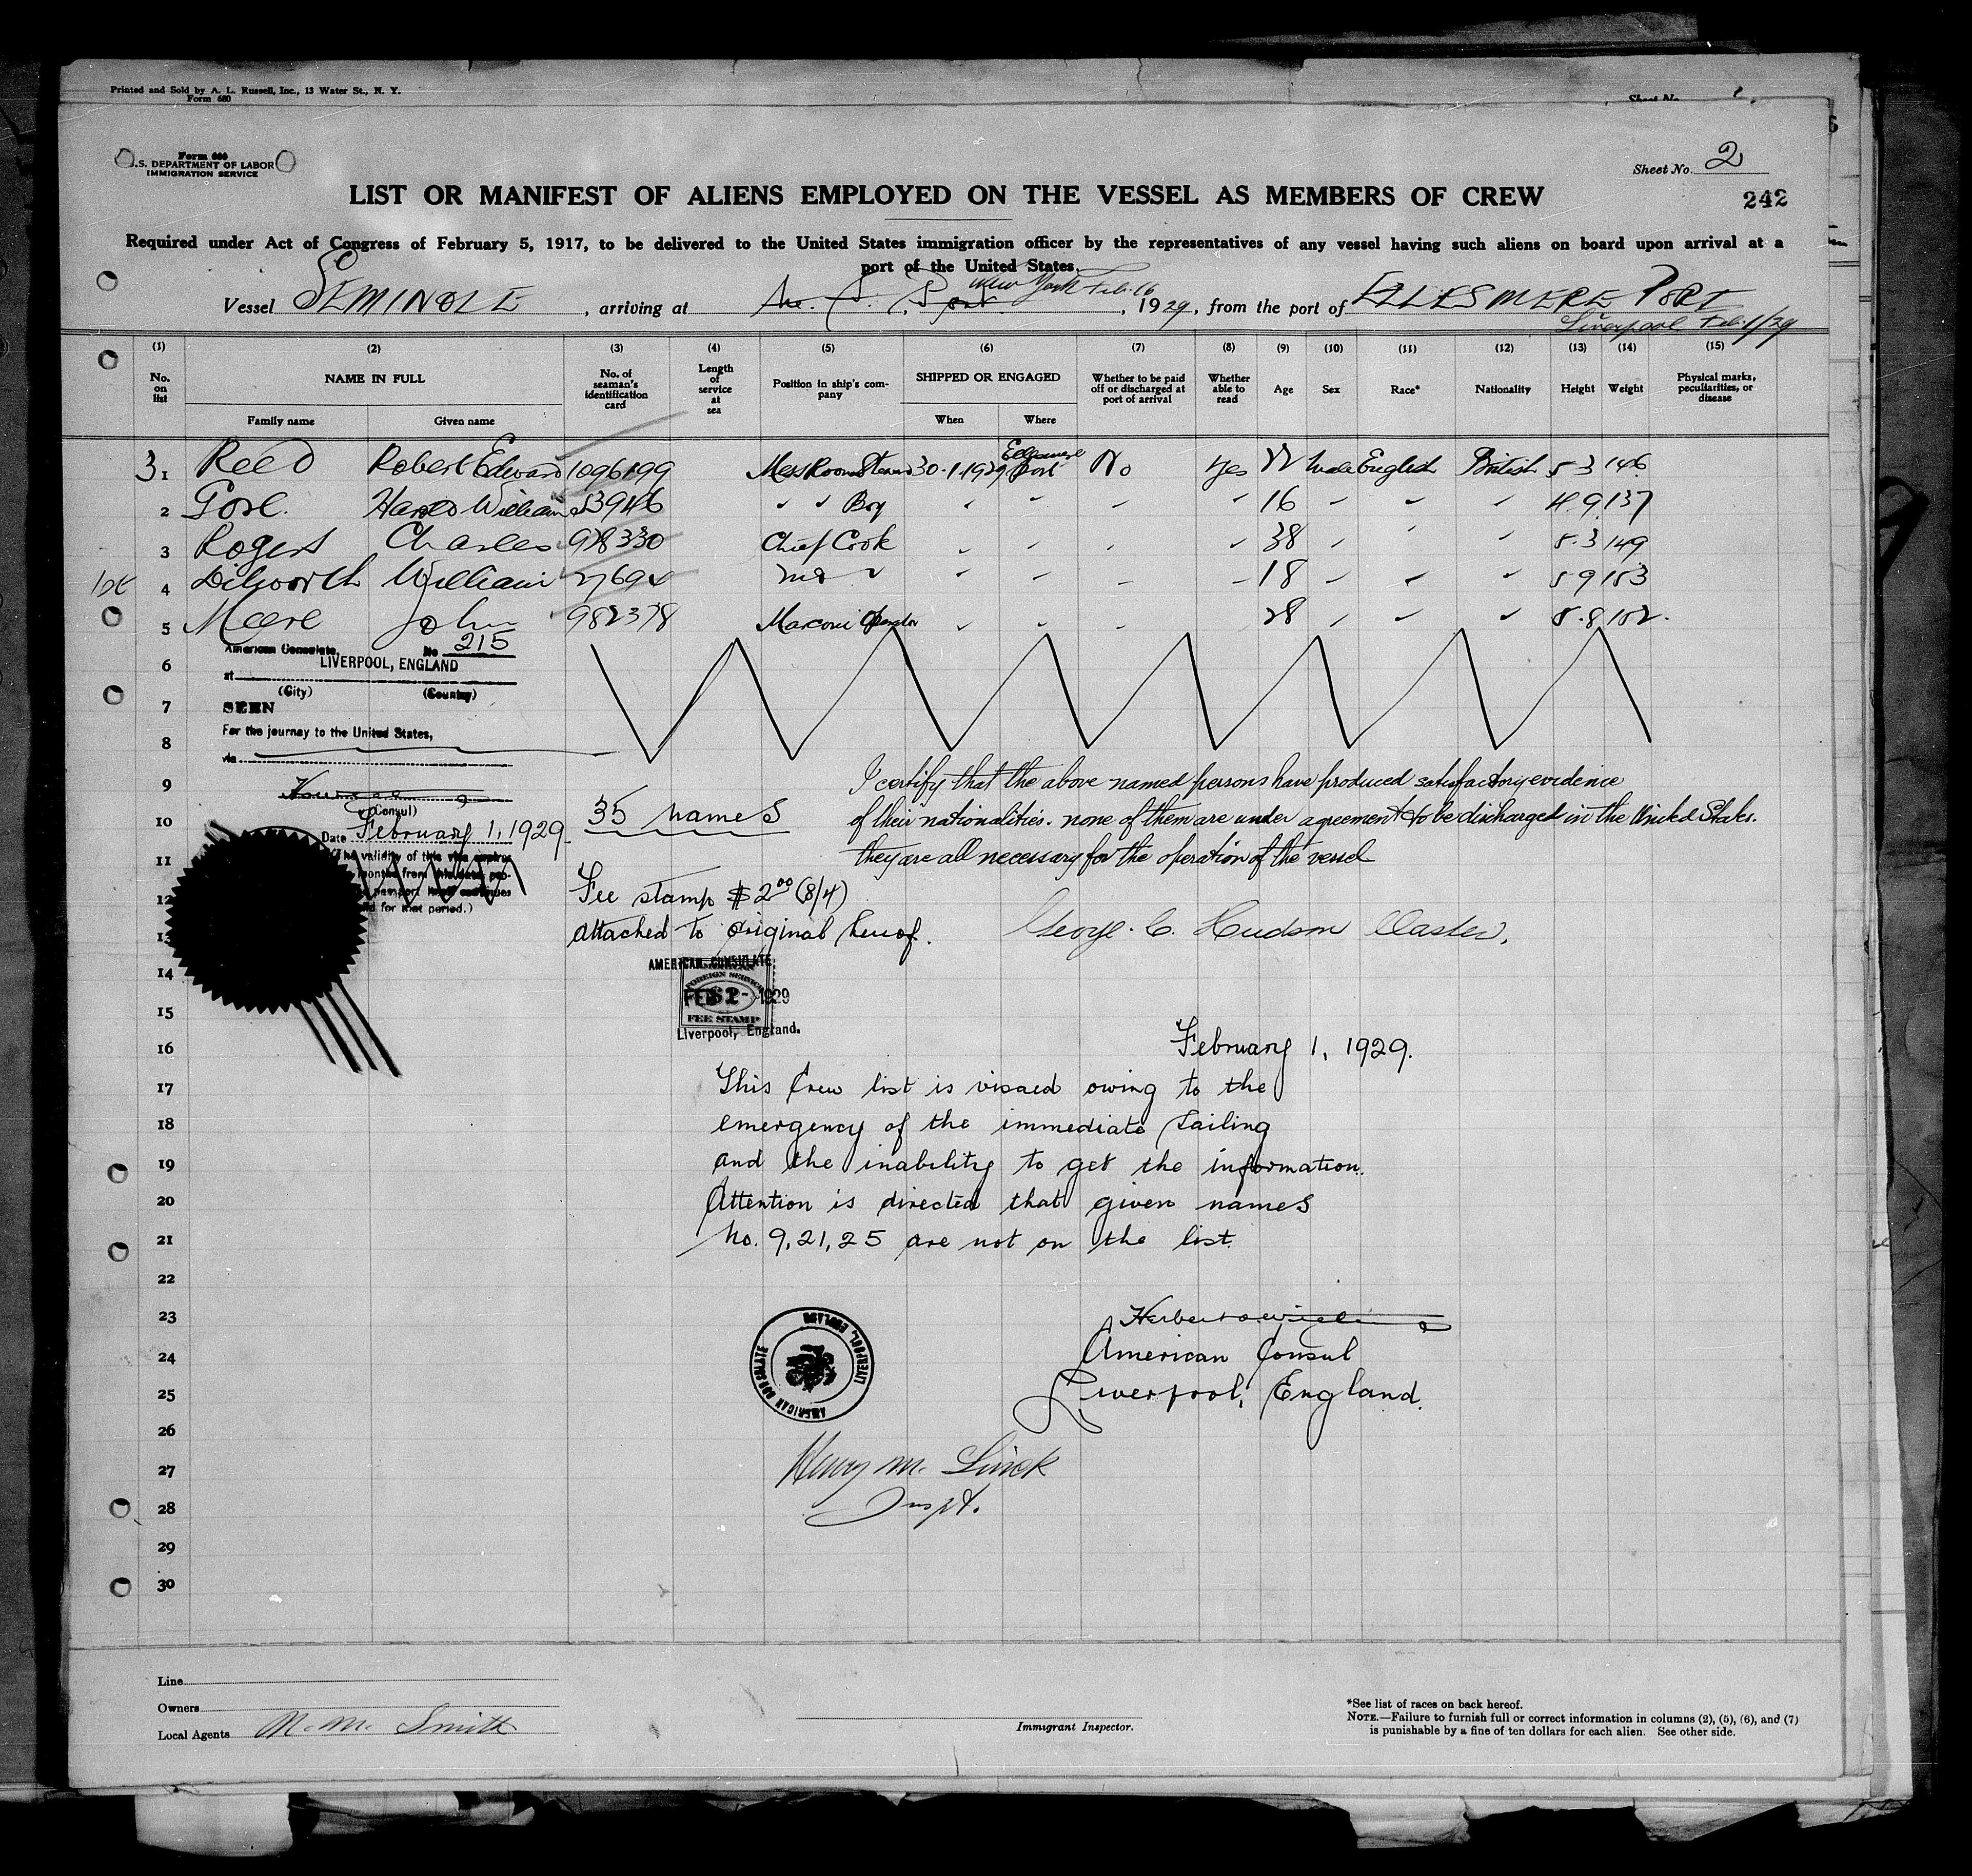 Printed and Sold by A. L. Russell, Inc., 13 Water St., N. Y.
Form 680
Sheet No.
Form 680
U.S. DEPARTMENT OF LABOR
IMMIGRATION SERVICE
Sheet No. 2
LIST OR MANIFEST OF ALIENS EMPLOYED ON THE VESSEL AS MEMBERS OF CREW
242
Required under Act of Congress of February 5, 1917, to be delivered to the United States immigration officer by the representatives of any vessel having such aliens on board upon arrival at a
port of the United States.
New York Feb. 16
Vessel SEMINOLE, arriving at U. S. Port, 1929, from the port of ELLESMERE PORT
Liverpool Feb. 1/29
(1) (2) (3) (4) (5) (6) (7) (8) (9) (10) (11) (12) (13) (14) (15)
No. on list NAME IN FULL No. of seaman's identification card Length of service at sea Position in ship's company SHIPPED OR ENGAGED Whether to be paid off or discharged at port of arrival Whether able to read Age Sex Race* Nationality Height Weight Physical marks, peculiarities, or disease
Family name Given name When Where
31 Reed Robert Edward 1096199 Mess Room Steward 30.1.1929 Ellesmere Port No Yes Male English British 5 3 146
2 Gore. Harold William Boy 16 4.9 137
3 Rogers Charles 978330 Chief Cook 38 5.3 149
4 Dilworth William 2nd 18 5 9 153
5 John 982378 Marconi Operator 28 5.8 152.
American Consulate, No 215
6 LIVERPOOL, ENGLAND
at
(City) (Country)
7 SEEN
For the journey to the United States,
8
via
9 I certify that the above named persons have produced satisfactory evidence
(Consul)
10 35 names of their nationalities. none of them are under agreement to be discharged in the United States.
Date February 1, 1929.
11 (The validity of this visa expires they are all necessary for the operation of the vessel
months from this date, pro-
passport continues
12 Fee stamp $2.00 (8/4)
for that period.)
13 attached to original hereof. George. C. Hudson Master.
AMERICAN CONSULATE
14 FOREIGN SERVICE
FEB 1 - 1929
15 FEE STAMP
Liverpool, England.
16 February 1, 1929.
17 This Crew list is visaed owing to the
18 emergency of the immediate sailing
19 and the inability to get the information.
20 Attention is directed that given names
21 No. 9, 21, 25 are not on the list.
22
23
24 American Consul
AMERICAN CONSULATE LIVERPOOL, ENGLAND
25 Liverpool, England.
26
27 Henry M. Linck
28 Inspt.
29
30
Line
Owners
Local Agents M. M. Smith
Immigrant Inspector.
*See list of races on back hereof.
NOTE.—Failure to furnish full or correct information in columns (2), (5), (6), and (7)
is punishable by a fine of ten dollars for each alien. See other side.